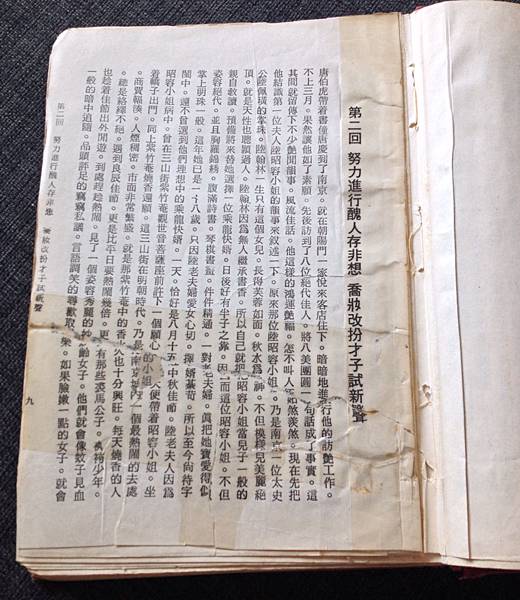 第二回 努力進行醜人存非想 喬妝改扮才子試新聲
唐伯虎帶着書僮唐慶到了南京。就在朝陽門一家悅來客店住下。暗暗地進行他的訪艷工作。
不上三月。果然讓他如了素願。先後訪到了八位絕代佳人。將八美團圓一句話成了事實。這
其間就留傳下不少艷聞韻事。風流佳話。他這樣的鴻運艷福。怎不叫人如煞羨煞。現在先把
他結識第一位夫人陸昭容小姐的韻事來叙述一下。原來那位陸昭容小姐。乃是南京一位太史
公陸佩橫的掌珠。陸翰林一生只有這個女兒。長得芙蓉如面。秋水爲神。不但模樣兒美麗絕
頂。就是天性也聰穎過人。陸翰林因爲無人繼承書香。所以自己就把昭容小姐當兒子一般的
親自教讀。預備將來替她選擇一位乘龍快婿。日後好有半子之靠。因而這位昭容小姐。不但
姿容絕代。並且胸羅錦綉。腹滿詩書。琴棋書畫。件件精通。一對老夫婦。眞把她寶愛得似
掌上明珠一般。這年她已是一十八歲。只因陸老夫婦愛女心切。擇婿綦苛。所以至今尚待字
閨中。還不曾選到他們理想中的乘龍快婿。一天。恰好是八月十五中秋佳節。陸老夫人因爲
昭容小姐病中。曾在三山街紫竹菴觀世音菩薩座前許下一個願心。天便帶着昭容小姐。坐
着轎子出門。同上紫竹菴燒香還願。這三山街在明朝時代。乃是南京城內一個最熱鬧的去處
。商賈輻湊。人煙稠密。市面非常繁盛。就是那紫竹菴中的香火也十分興旺。每天燒香的人
。總是絡繹不絕。遇到良辰佳節。更是比平日要熱鬧幾倍。更有那些裘馬公子。執袴少年。
也趁着佳節出外閒遊。到處趕趁熱鬧。見了一個姿容秀麗的妙齡女子。他們就會像蚊子見血
一般的暗中追隨。品頭評足的竊竊私議。言語調笑的尋歡取樂。如果臉嫩一點的女子。就會
第二回 努力進行醜人存非想 喬妝改扮才子試新聲
九